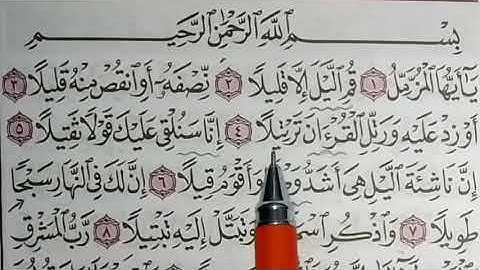 بِسْمِ ٱللَّهِ ٱلرَّحْمَٰنِ ٱلرَّحِيمِ
يَٰٓأَيُّهَا ٱلْمُزَّمِّلُ ١ قُمِ ٱلَّيْلَ إِلَّا قَلِيلًا ٢ نِّصْفَهُۥٓ أَوِ ٱنقُصْ مِنْهُ قَلِيلًا ٣
أَوْ زِدْ عَلَيْهِ وَرَتِّلِ ٱلْقُرْءَانَ تَرْتِيلًا ٤ إِنَّا سَنُلْقِى عَلَيْكَ قَوْلًا ثَقِيلًا ٥
إِنَّ نَاشِئَةَ ٱلَّيْلِ هِىَ أَشَدُّ وَأَقْوَمُ قِيلًا ٦ إِنَّ لَكَ فِى ٱلنَّهَارِ سَبْحًا
طَوِيلًا ٧ وَٱذْكُرِ ٱسْمَ وَتَبَتَّلْ إِلَيْهِ تَبْتِيلًا ٨ رَّبُّ ٱلْمَشْرِقِ